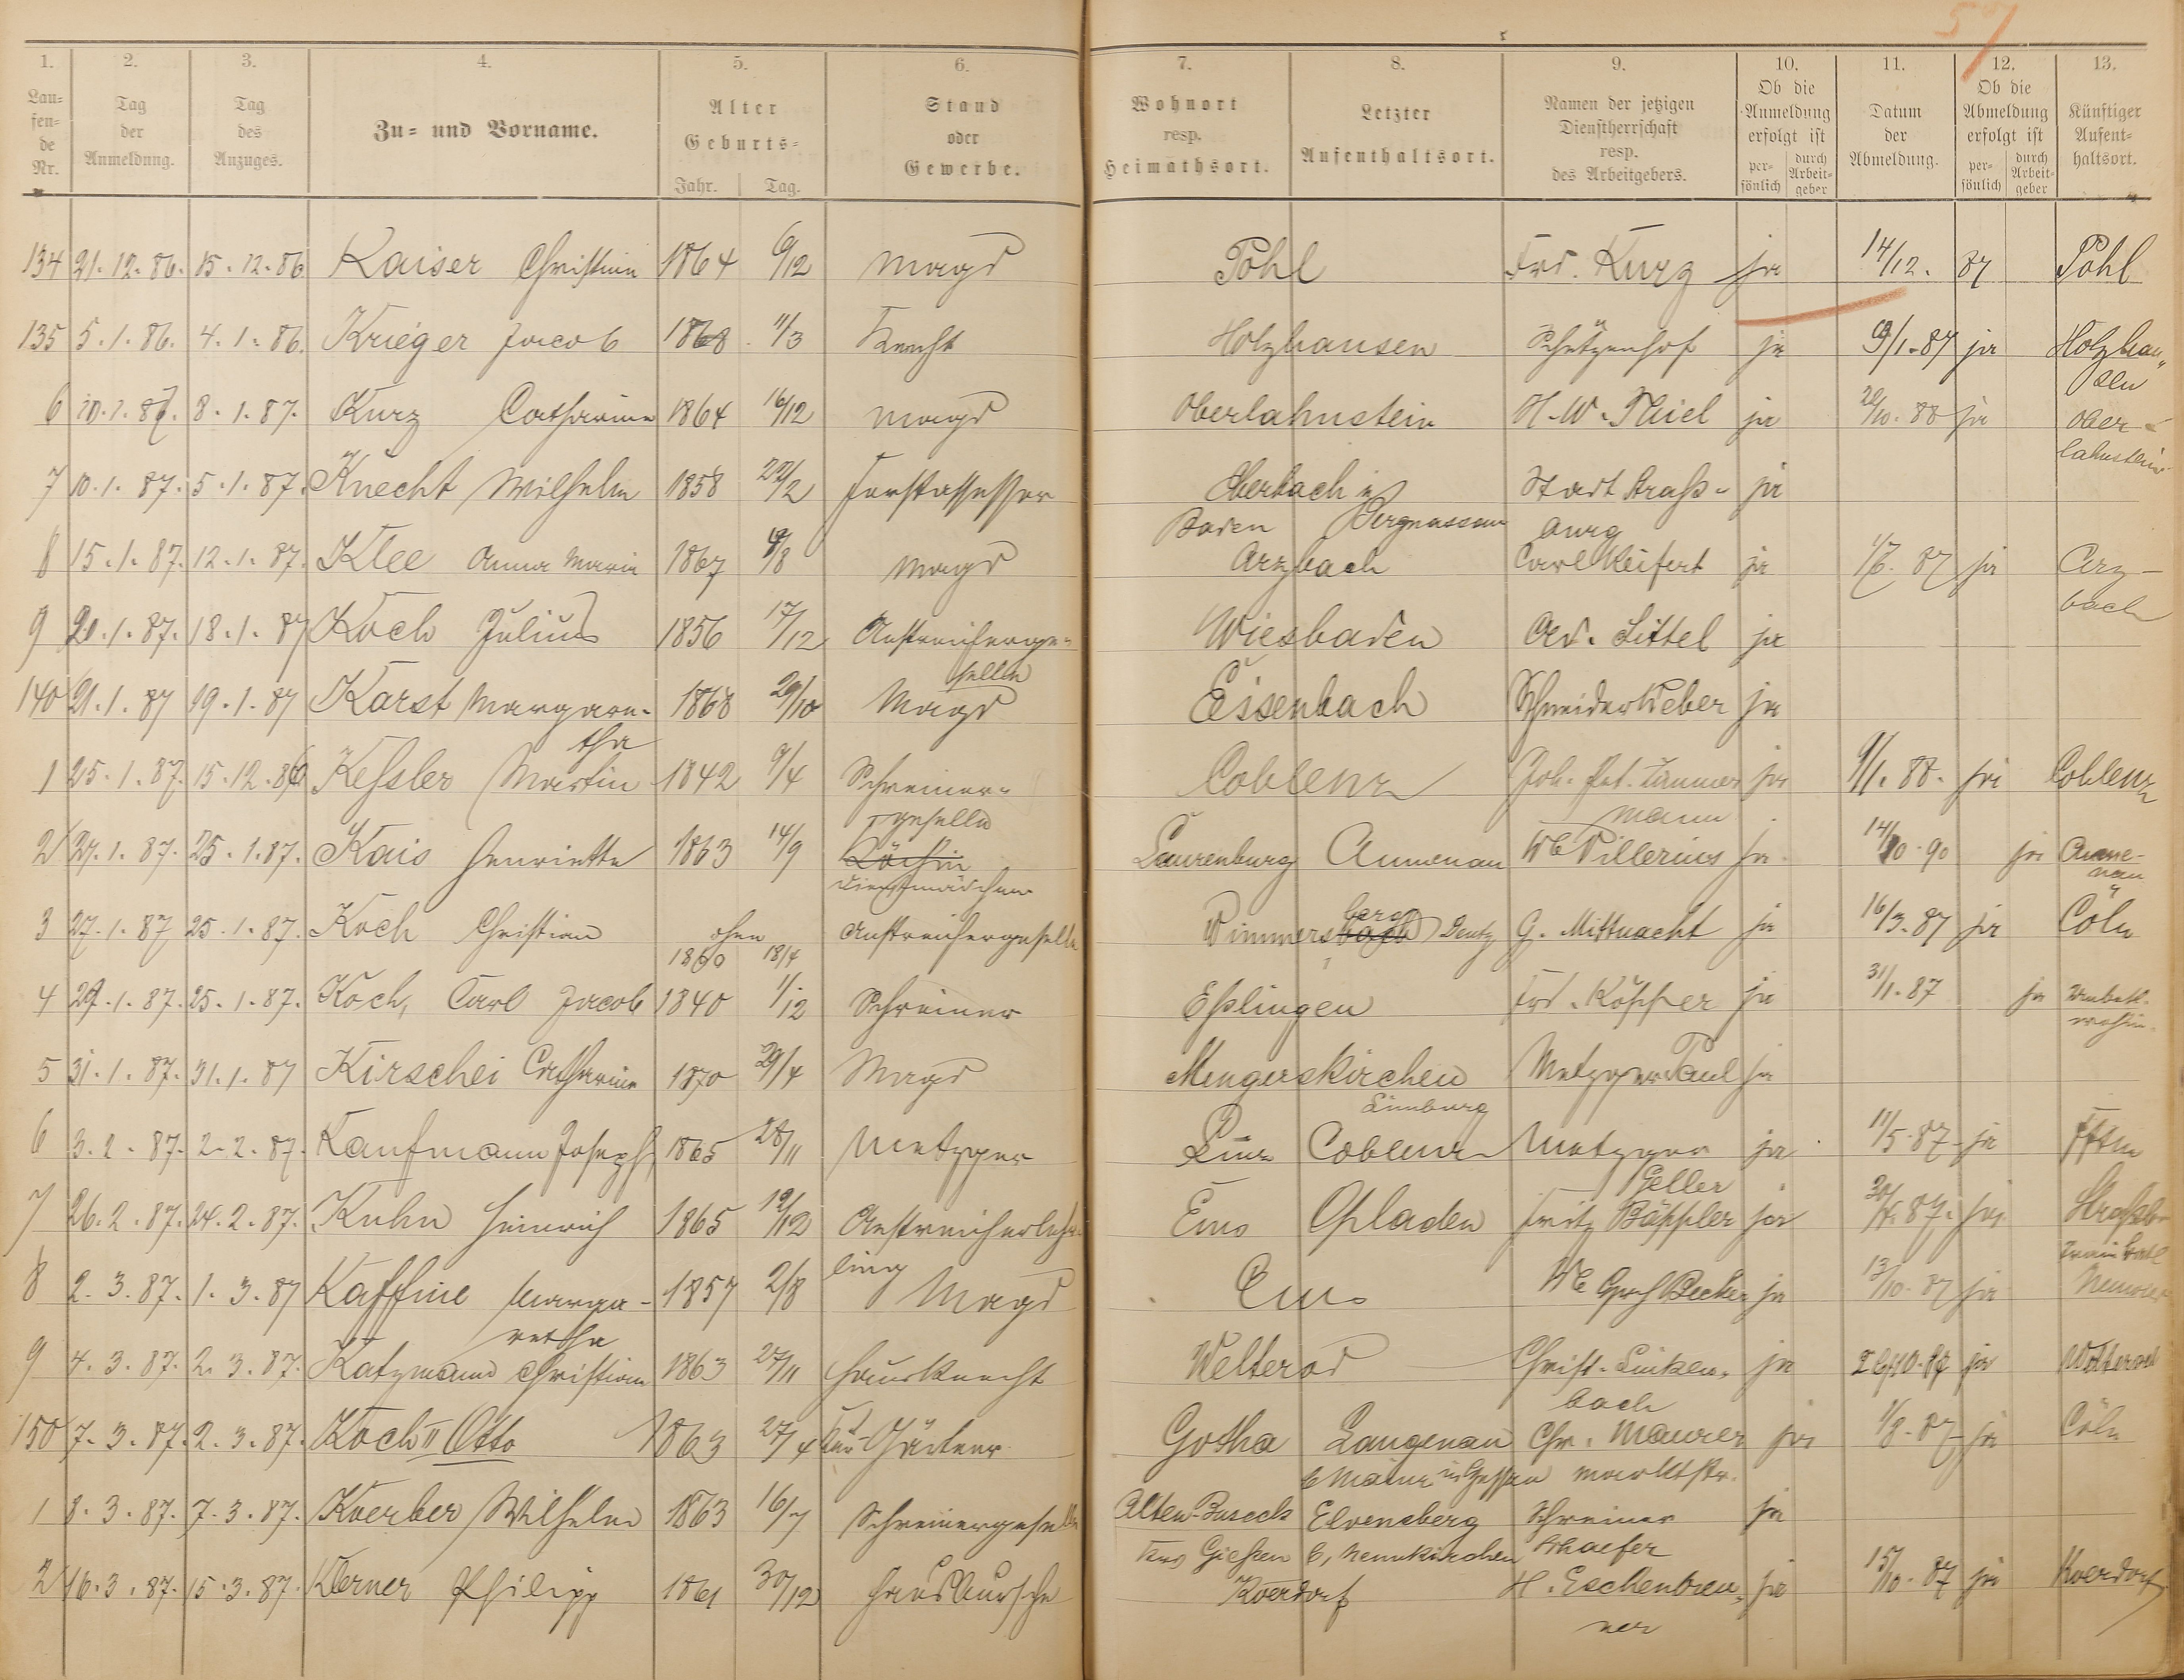 57
1. 2. 3. 4. 5. 6. 7. 8. 9. 10. 11. 12. 13.
Lau=fen=de Nr. | Tag der Anmeldung. | Tag des Anzuges. | Zu= und Vorname. | Alter Geburts= Jahr. Tag. | Stand oder Gewerbe. | Wohnort resp. Heimathsort. | Letzter Aufenthaltsort. | Namen der jetzigen Dienstherrschaft resp. des Arbeitgebers. | Ob die Anmeldung erfolgt ist per=sönlich durch Arbeit=geber | Datum der Abmeldung. | Ob die Abmeldung erfolgt ist per=sönlich durch Arbeit=geber | Künftiger Aufent=haltsort.
134 21.12.86. 15.12.86 Kaiser Christine 1864 6/12 Magd Pohl Frd. Kurz ja 14/12. 87 Pohl
135 5.1.86. 4.1.86. Krieger Jacob 1868 11/3 Knecht Holzhausen Schützenhof ja 9/1.87 ja Holzhau„
sen
6 10.1.87. 8.1.87. Kurz Catharine 1864 16/12 Magd Oberlahnstein H. W. Thiel ja 20/10.88 ja Ober-
lahnstein
7 10.1.87. 5.1.87. Knecht Wilhelm 1858 22/2 Forstassessor Eberbach i/ Stadt Straß- ja
Baden Bergnassau burg
8 15.1.87. 12.1.87. Klee Anna Maria 1867 9/8 Magd Arzbach Carl Reifert ja 1/6. 87 ja Arz-
bach
9 20.1.87. 18.1.87 Koch Julius 1856 17/12 Anstreicherge- Wiesbaden Ad. Littel ja
selle
140 21.1.87 19.1.87 Karst Margare- 1868 29/10 Magd Eisenbach Schneider Weber ja
tha
1 25.1.87. 15.12.86 Keßler Martin 1842 9/4 Schreiner- Coblenz Joh. Pet. Zimmer ja 9/1.88. ja Coblenz
geselle mann
2 27.1.87. 25.1.87. Kais Henriette 1863 14/9 Köchin Laurenburg Aumenau We Villerius ja 14/10.90 ja Aume-
Dienstmädchen nau
3 27.1.87 25.1.87. Koch Christian ohen Anstreichergeselle Wimmersbach berg Deutz G. Mittnacht ja 16/3.87 ja Cöln
1860 18/4
4 27.1.87. 25.1.87. Koch, Carl Jacob 1840 1/12 Schreiner Eßlingen Frd. Köpper ja 31/1.87 ja unbek.
wohin.
5 31.1.87. 31.1.87 Kirschei Catharine 1870 29/4 Magd Mengerskirchen Metzger Paul ja
Limburg
6 3.2.87. 2.2.87. Kaufmann Joseph 1865 28/11 Metzger Linz Coblenz Metzger ja 11/5.87 ja
Geller
7 26.2.87. 24.2.87. Kuhn Heinrich 1865 19/12 Anstreicherlehr- Ems Opladen Fritz Bäppler ja 87. ja
ling
8 2.3.87. 1.3.87 Kaffine Marga- 1857 2/8 Magd Ems We Grch Becker ja 13/10.87 ja
retha
9 4.3.87. 2.3.87. Katzmann Christian 1863 27/11 Hausknecht Welterod Christ. Linken- ja 26/10.87 ja Welterod
bach
150 7.3.87. 2.3.87. Koch II Otto 1863 27/4 Gärtner Gotha Langenau Chr. Maurer ja 1/8.87 ja Cöln
b Mainz in Hessen Marktstr.
1 8.3.87. 7.3.87. Koerber Wilhelm 1863 16/7 Schreinergeselle Alten-Buseck Elvensberg Schreiner ja
Kreis Gießen b, Neunkirchen Schaefer
2 16.3.87. 15.3.87. Kerner Philipp 1861 30/12 Hausbursche Koerdorf H. Eschenbren- ja 15/10.87 ja Koerdorf
ner